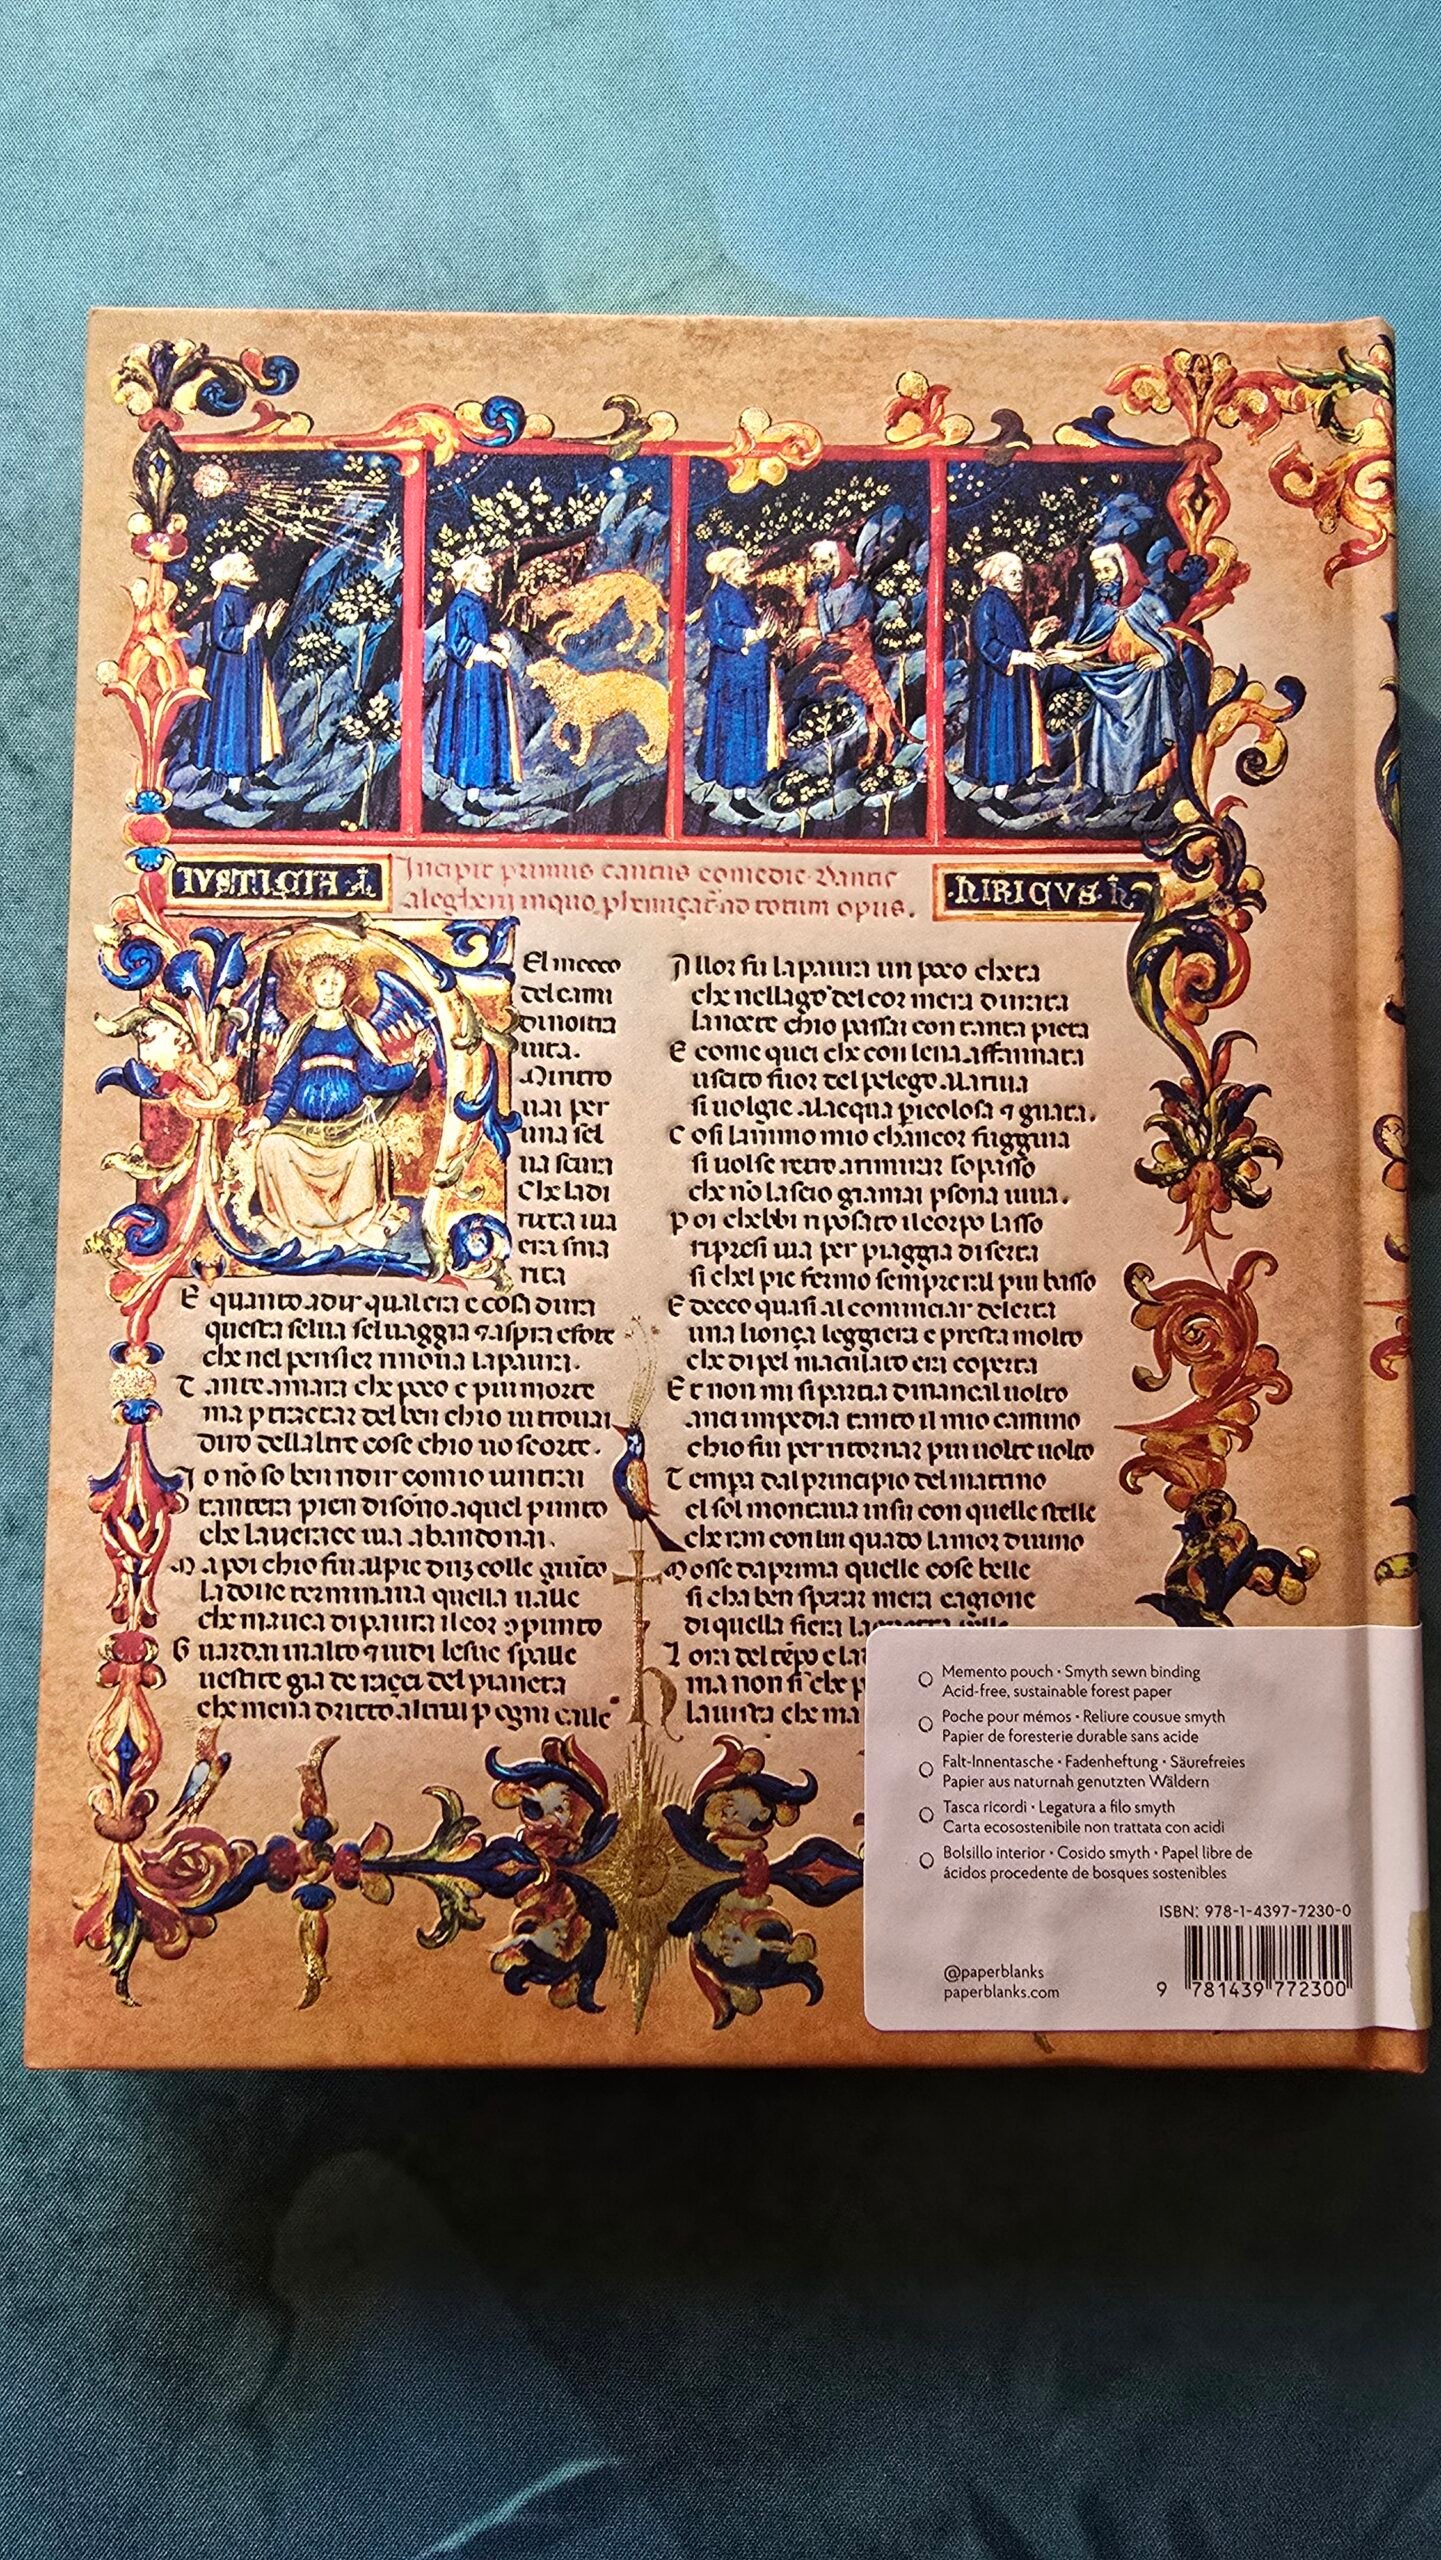 IVSTICIA
Incipit primus cantus comedie Dantis
alegherij inquo
totum opus.
El mecco
del cami
di nostra
uita.
Mi ritro
uai per
una sel
ua scura
Che la di
ritta uia
era sma
rita
E quanto a dir qual era e cosa dura
questa selua seluaggia ⁊ aspra e forte
che nel pensier rinoua la paura.
Tante amara che poco e piu morte
ma p tractar del ben chio ui trouai
diro dellaltre cose chio uo scorte.
Io nõ so ben ridir como uintrai
tantera pien di sõno a quel punto
che la uerace uia abandonai.
Ma poi chio fui al pie
colle
la doue terminaua quella ualle
che mauea di paura il cor
punto
Guardai in alto ⁊ uidi le sue spalle
uestite gia de raggi del pianeta
che mena dritto altrui p ogni calle
Allor fu la paura un poco cheta
che nel lago del cor mera durata
la nocte chio passai con tanta pieta
E come quei che con lena affannata
uscito fuor del pelego ala riua
si uolgie alacqua picolosa ⁊ guata.
Cosi lanimo mio chancor fuggiua
si uolse retro a rimirar lo passo
che nõ lascio giamai psona uiua.
Poi
posato il corpo lasso
ripresi uia per piaggia diserta
si chel pie fermo sempre era l piu basso
Ed ecco quasi al cominciar delerta
una lionça leggiera e presta molto
che di pel maculato era coperta
Et non mi si partia dinançal uolto
anci impedia tanto il mio camino
chio fui per ritornar piu uolte uolto
Tempa dal principio del mattino
el sol montaua in su con quelle stelle
cheran con lui quãdo lamor diuino
Mosse da prima quelle cose belle
si cha ben sperar mera cagione
di quella fiera
Lora del tẽpo e la
ma non si che p
la uista che ma
Memento pouch • Smyth sewn binding
Acid-free, sustainable forest paper
Poche pour mémos • Reliure cousue smyth
Papier de foresterie durable sans acide
Falt-Innentasche • Fadenheftung • Säurefreies
Papier aus naturnah genutzten Wäldern
Tasca ricordi • Legatura a filo smyth
Carta ecosostenibile non trattata con acidi
Bolsillo interior • Cosido smyth • Papel libre de
ácidos procedente de bosques sostenibles
ISBN: 978-1-4397-7230-0
@paperblanks
paperblanks.com
9 781439 772300